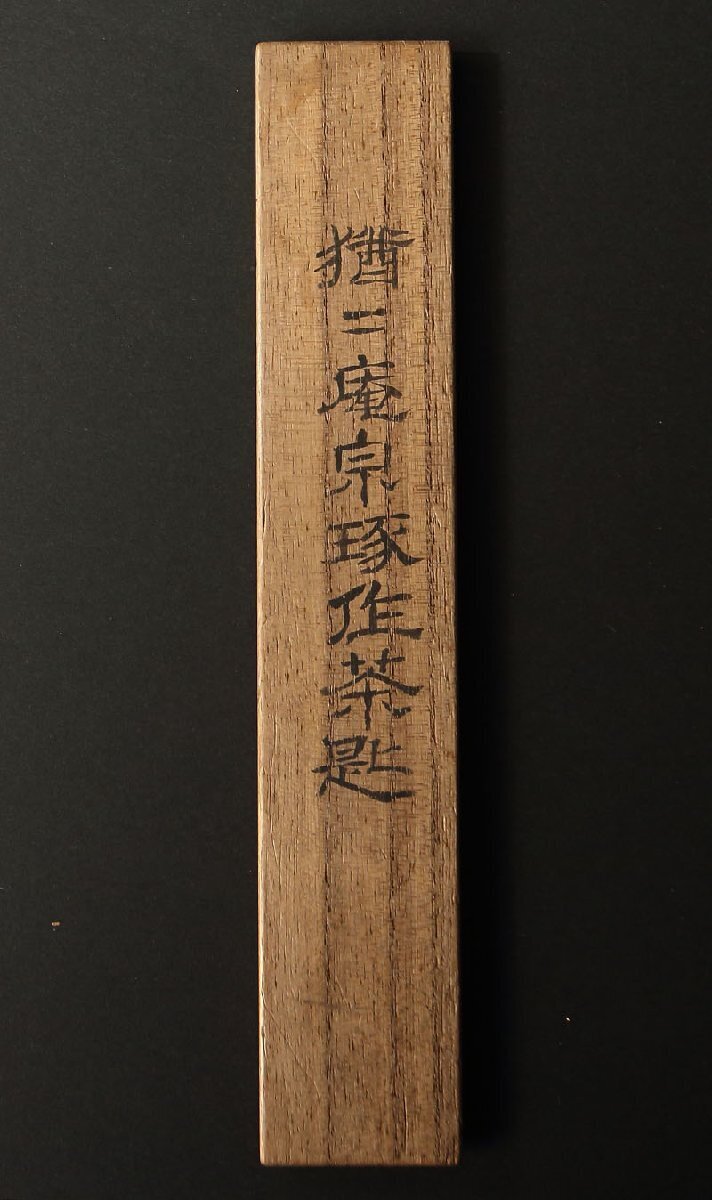 猶二庵宗琢作茶匙